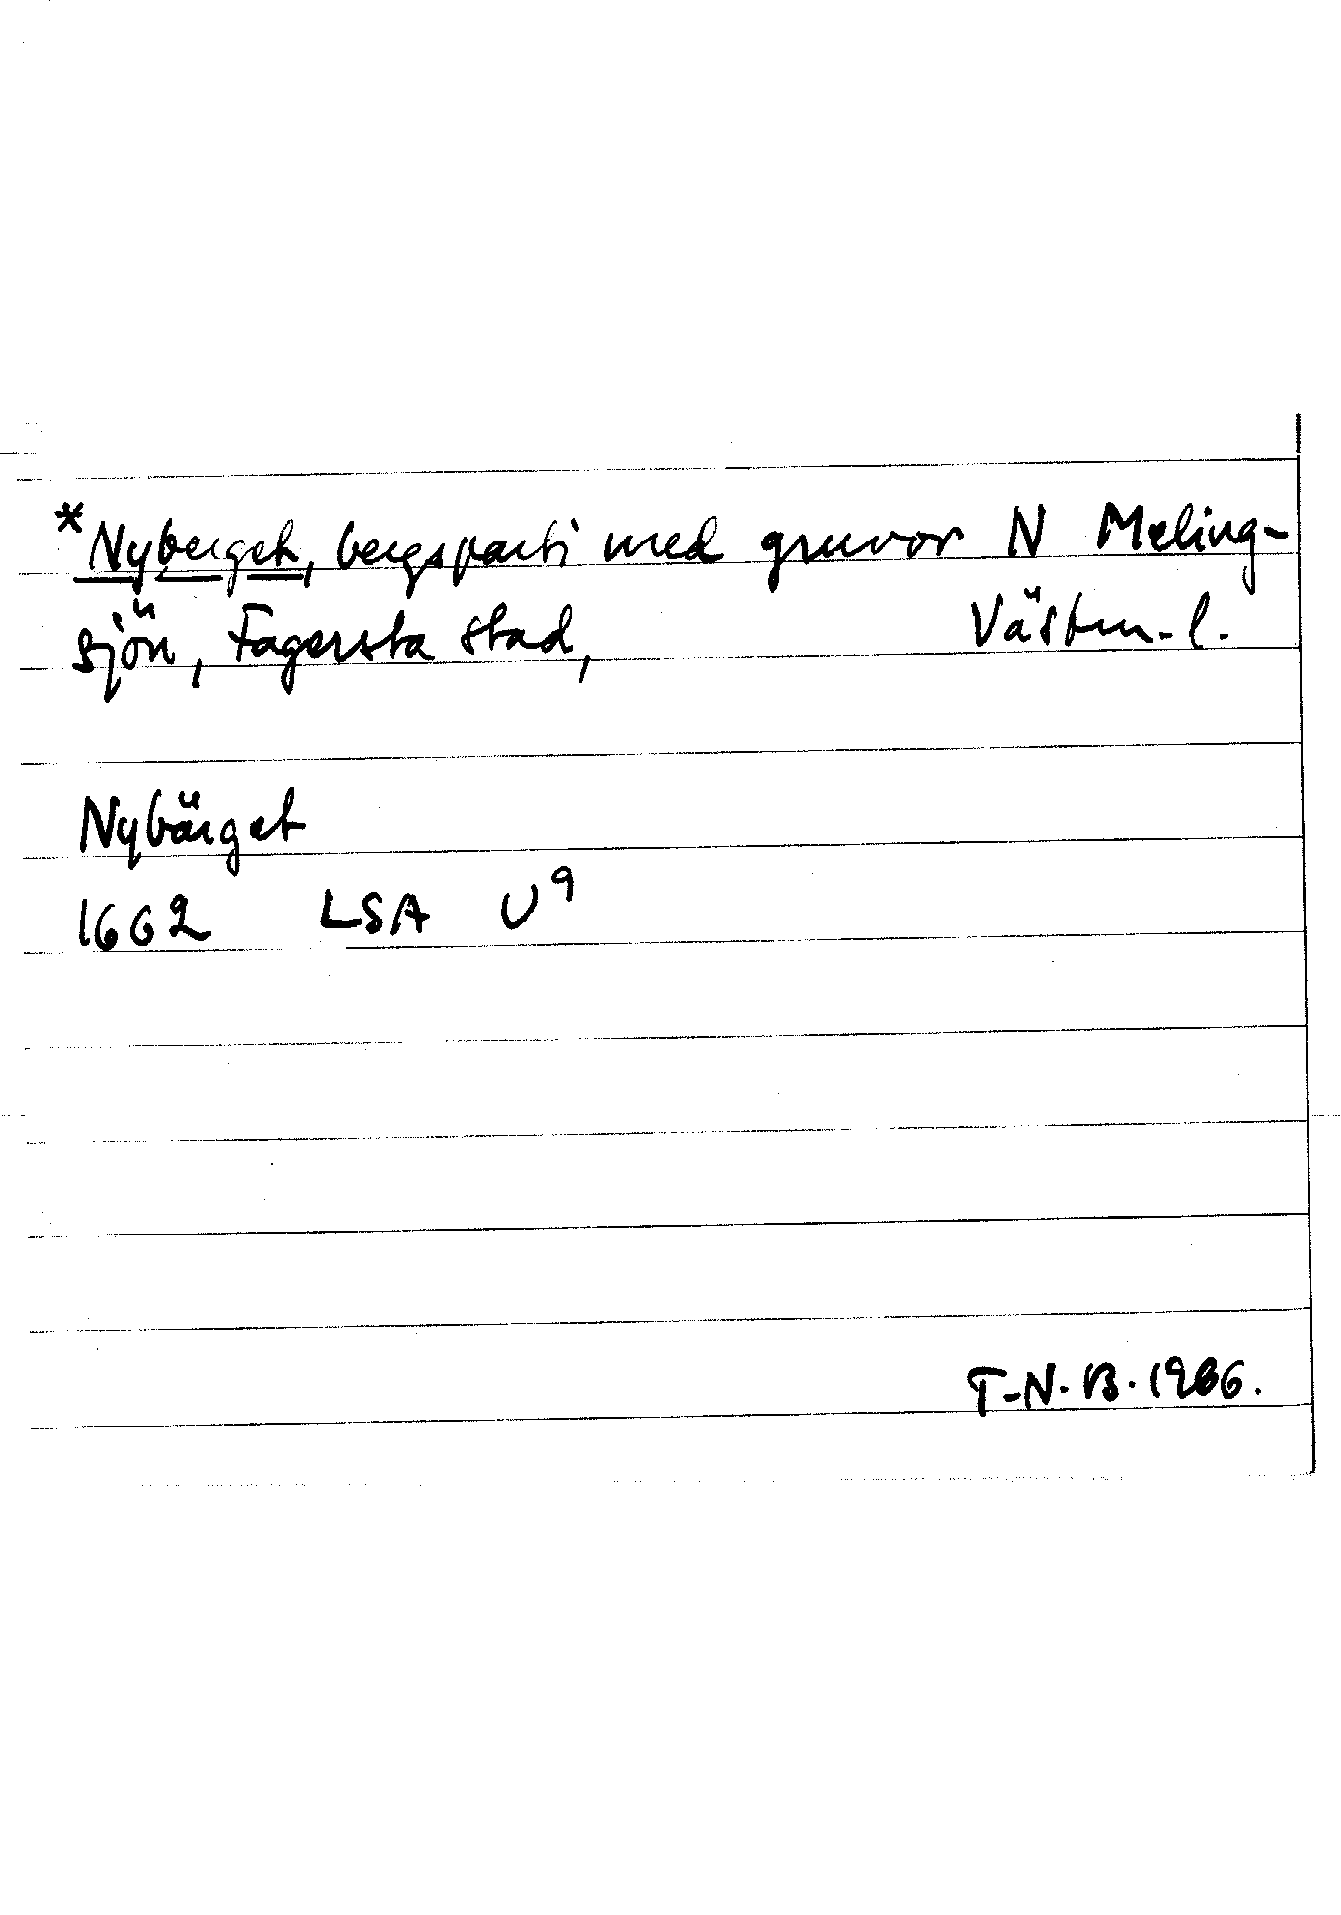 *Nyberget, bergsparti med gruvor N Meling-
sjön, Fagersta stad, Västm. l.
Nybärget
1662 LSA U⁹
T-N. B. 1966.